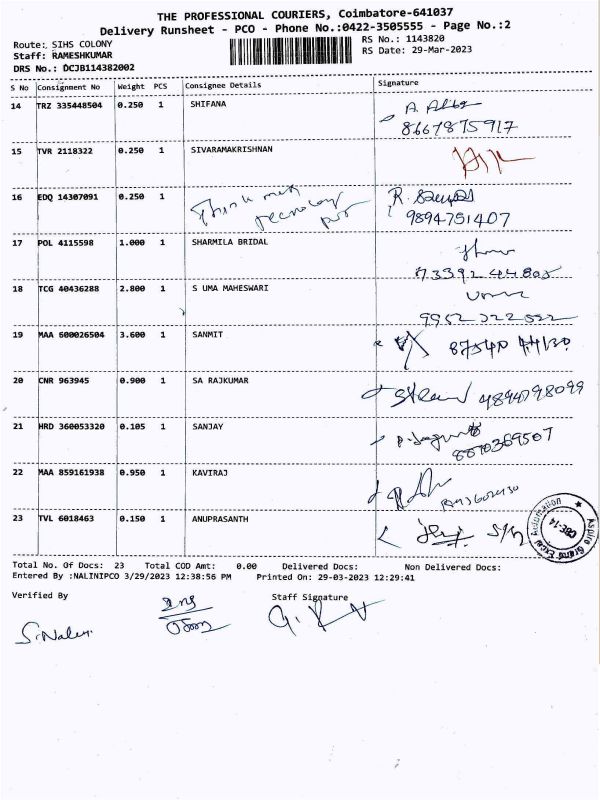 THE PROFESSIONAL COURIERS, Coimbatore-641037
Delivery Runsheet - PCO - Phone No.:0422-3505555 - Page No.:2
Route: SIHS COLONY
RS No.: 1143820
Staff: RAMESHKUMAR
RS Date: 29-Mar-2023
DRS No.: DCJB114382002
S No Consignment No Weight PCS Consignee Details Signature
14 TRZ 335448504 0.250 1 SHIFANA
8667875917
15 TVR 2118322 0.250 1 SIVARAMAKRISHNAN
16 EDQ 14307091 0.250 1 Think
9894751407
17 POL 4115598 1.000 1 SHARMILA BRIDAL
73392 44805
18 TCG 40436288 2.800 1 S UMA MAHESWARI
Uma
9952 222 522
19 MAA 600026504 3.600 1 SANMIT
20 CNR 963945 0.900 1 SA RAJKUMAR
21 HRD 360053320 0.105 1 SANJAY
8870369507
22 MAA 859161938 0.950 1 KAVIRAJ
23 TVL 6018463 0.150 1 ANUPRASANTH
CBE-14
Total No. Of Docs: 23 Total COD Amt: 0.00 Delivered Docs: Non Delivered Docs:
Entered By :NALINIPCO 3/29/2023 12:38:56 PM Printed On: 29-03-2023 12:29:41
Verified By Staff Signature